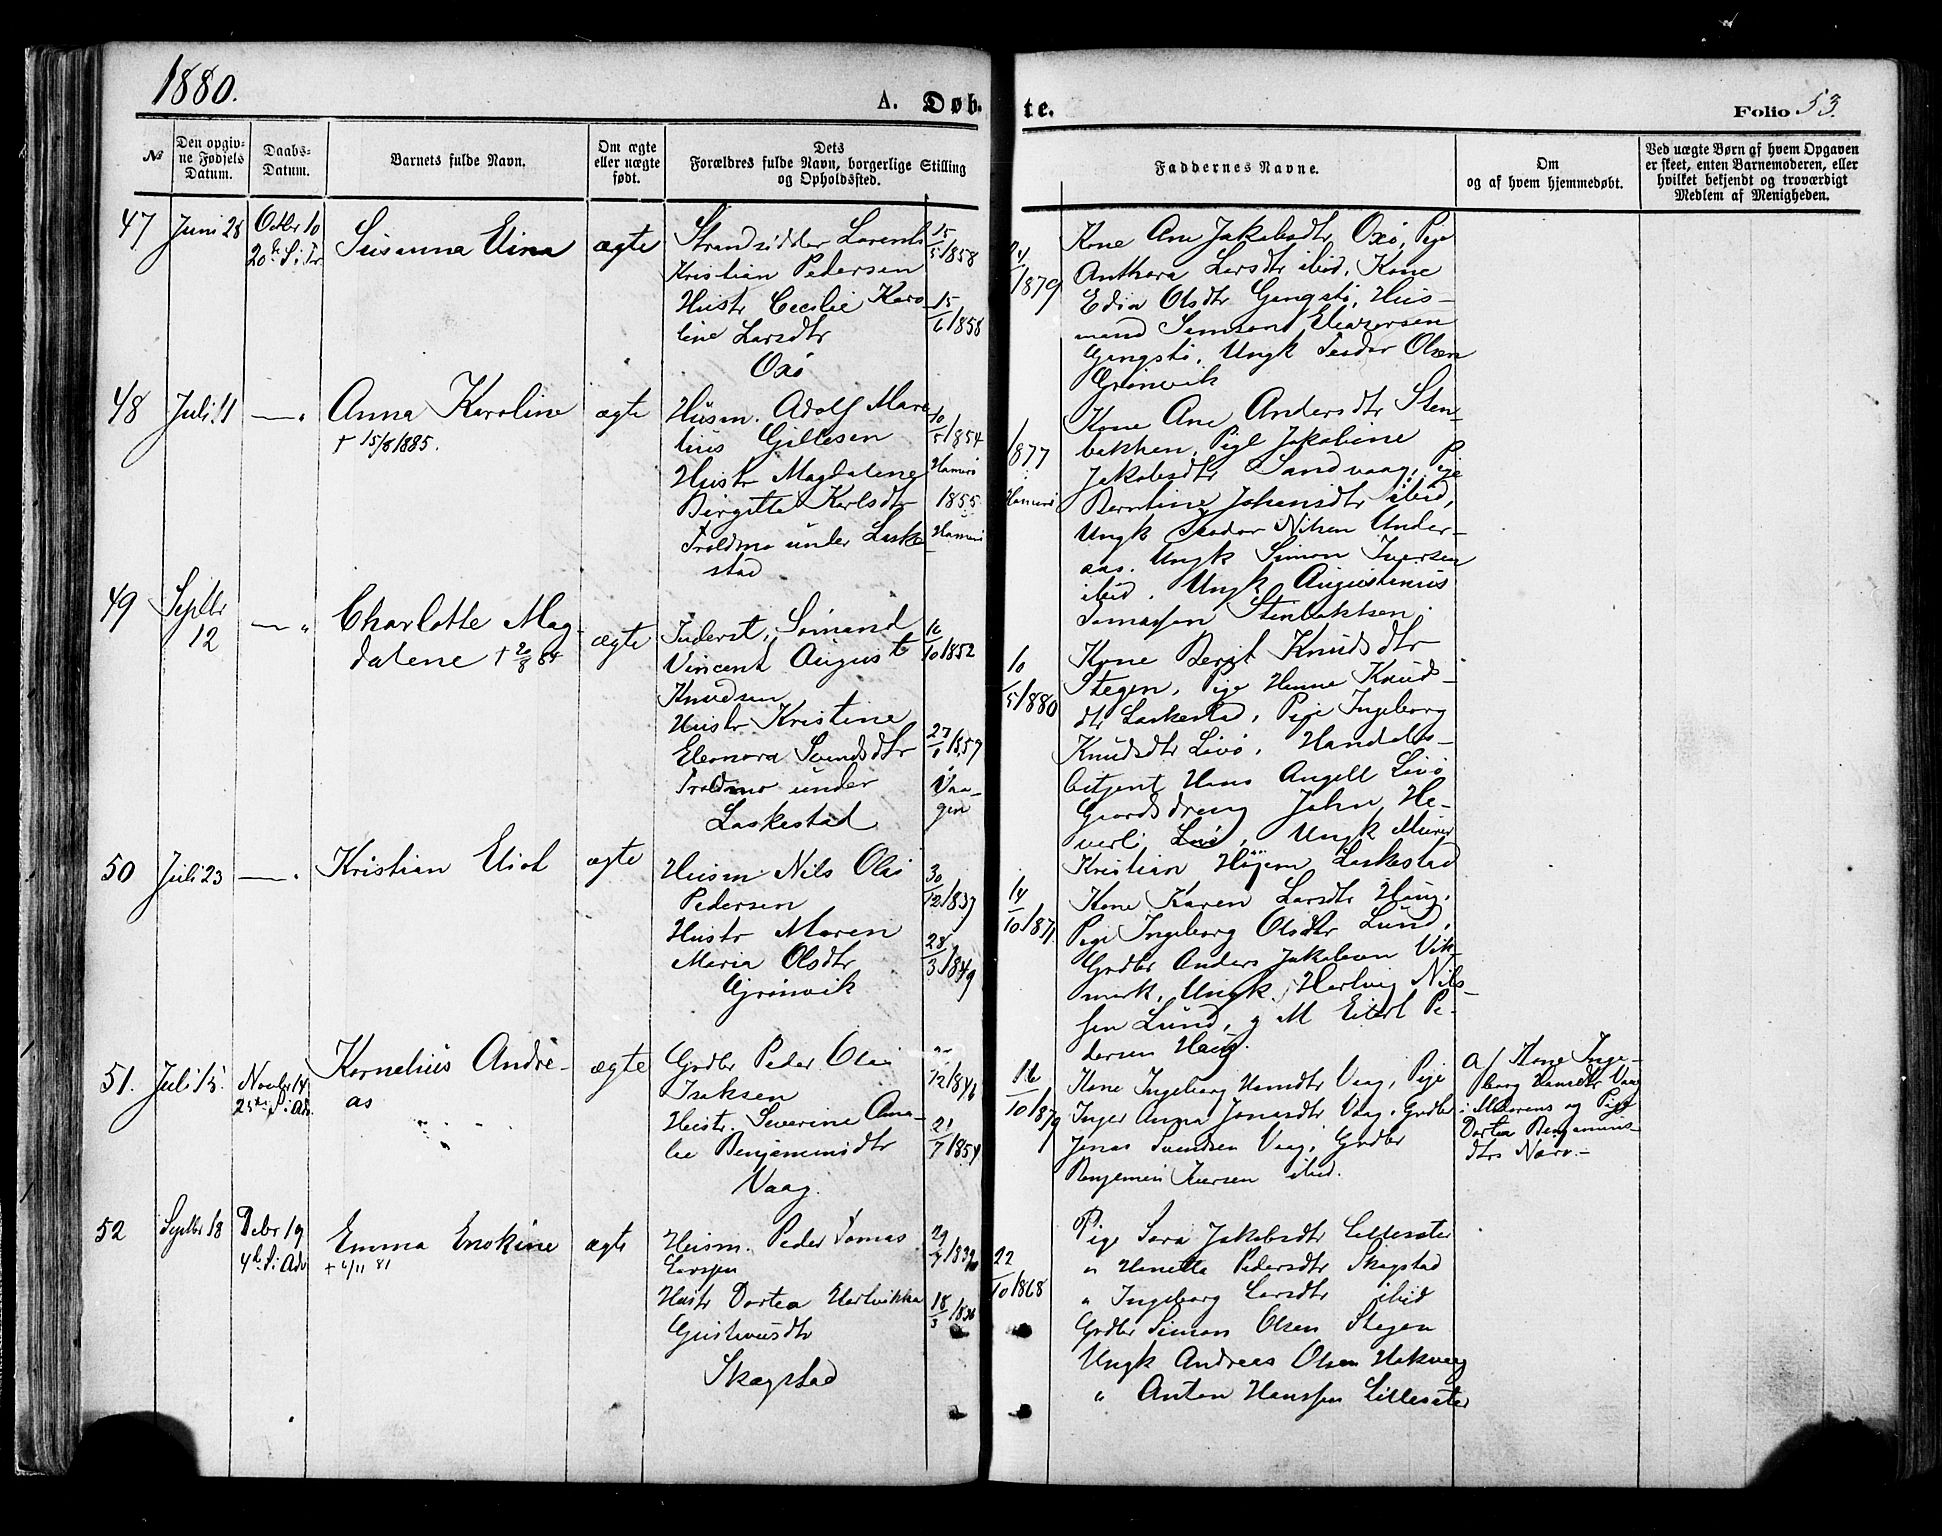 1880.
A. Døb-
te.
Folio 53.
№
Den opgiv-
ne Fødsels
Datum.
Daabs-
Datum.
Barnets fulde Navn.
Om ægte
eller uægte
født.
Dets
Forældres fulde Navn, borgerlige Stilling
og Opholdssted.
Faddernes Navne.
Om
og af hvem hjemmedøbt.
Ved uægte Børn af hvem Opgaven
er skeet, enten Barnemoderen, eller
hvilket bekjendt og troværdigt
Medlem af Menigheden.
47
Juni 28
Octbr 10
20de S. i Tr
Susanna Elina
ægte
Strandsidder Lorents
Kristian Pedersen
Hustr Cecilie Karo-
line Larsdtr
Oxø
15/5 1858
15/6 1858
/1879
Kone Ane Jakobsdtr Oxø, Pige
Anthora Larsdtr ibid, Kone
Edia Olsdtr Gengstø, Hus-
mand Samson Eleasersen
Gengstø, Ungk Teodor Olsen
Grönvik
48
Juli 11
— "
Anna Karoline
† 15/8 1885.
ægte
Husm. Adolf Mari
lius Gillesen
Hustr Magdalene
Birgitte Karlsdtr
Troldmo under Laske
stad
10/5 1854
Hamerø
1855
Hamerø
1877
Hamerø
Kone Ane Andersdtr Sten-
bakken, Pige Jakobine
Jakobsdtr Sandvaag, Pige
Berntine Johansdtr ibid,
Ungk Teodor Nilsen Under-
aas. Ungk Simon Iversen
ibid. Ungk Augustinius
Tomassen Stenbakken.
49
Septbr
12
— "
Charlotte Mag-
dalene † 20/8 84
ægte
Inderst, Sömand
Vincent August
Knudsen
Hustr Kristine
Eleonora Svendsdtr
Troldmo under
Laskestad
16/10 1852
27/1 1857
Vaa-
gen
10/5 1880
Kone Berit Knudsdtr
Stegen, Pige Hanne Knuds-
dtr Laskestad, Pige Ingeborg
Knudsdtr Livø, Handels-
betjent Hans Angell Livø
Gaardsdreng John He-
verli Livø, Ungk Murer
Kristian Höjem Laskestad
50
Juli 23
— "
Kristian Eliot
ægte
Husm Nils Olai
Pedersen
Hustr Maren
Maria Olsdtr
Grönvik
30/12 1837
28/3 1849
14/10 1871
Kone Karen Larsdtr Haug,
Pige Ingeborg Olsdtr Lund,
Grdbr Anders Jakobsen Vik-
mark, Ungk Hartvig Nils-
sen Lund, g M Eilert Pe-
dersen Haug.
51.
Juli 15.
Novbr 14
25de S. i Adv
Kornelius Andre-
as
ægte
Grdbr Peder Olai
Isaksen
Hustr. Severine Ama-
lie Benjaminsdtr
Vaag.
/12 1846
21/7 1854
16/10 1879
Kone Ingeborg Hansdtr Vaag, Pige
Inger Anna Jonasdtr Vaag, Grdbr
Jonas Svendsen Vaag, Grdbr
Benjamin Iversen ibid.
Af Kone Inge-
borg Hansdtr Vaag
i Moderens og Pige
Dortea Benjamins-
dtrs Nærv.—
52
Septbr 18
Debr 19
4de S. i Adv
Emma Enokine
† 6/11 81
ægte
Husm. Peder Tomas
Larssen
Hustr Dortea Hartvikka
Gustavusdtr
Skagstad
18/3 1836
22/10 1868
Pige Sara Jakobsdtr Lillesæter
" Hanetta Pedersdtr Skagstad
" Ingeborg Larsdtr ibid
Grdbr Simon Olsen Stegen
Ungk Andreas Olsen Hakvaag
" Anton Hanssen Lillesæter